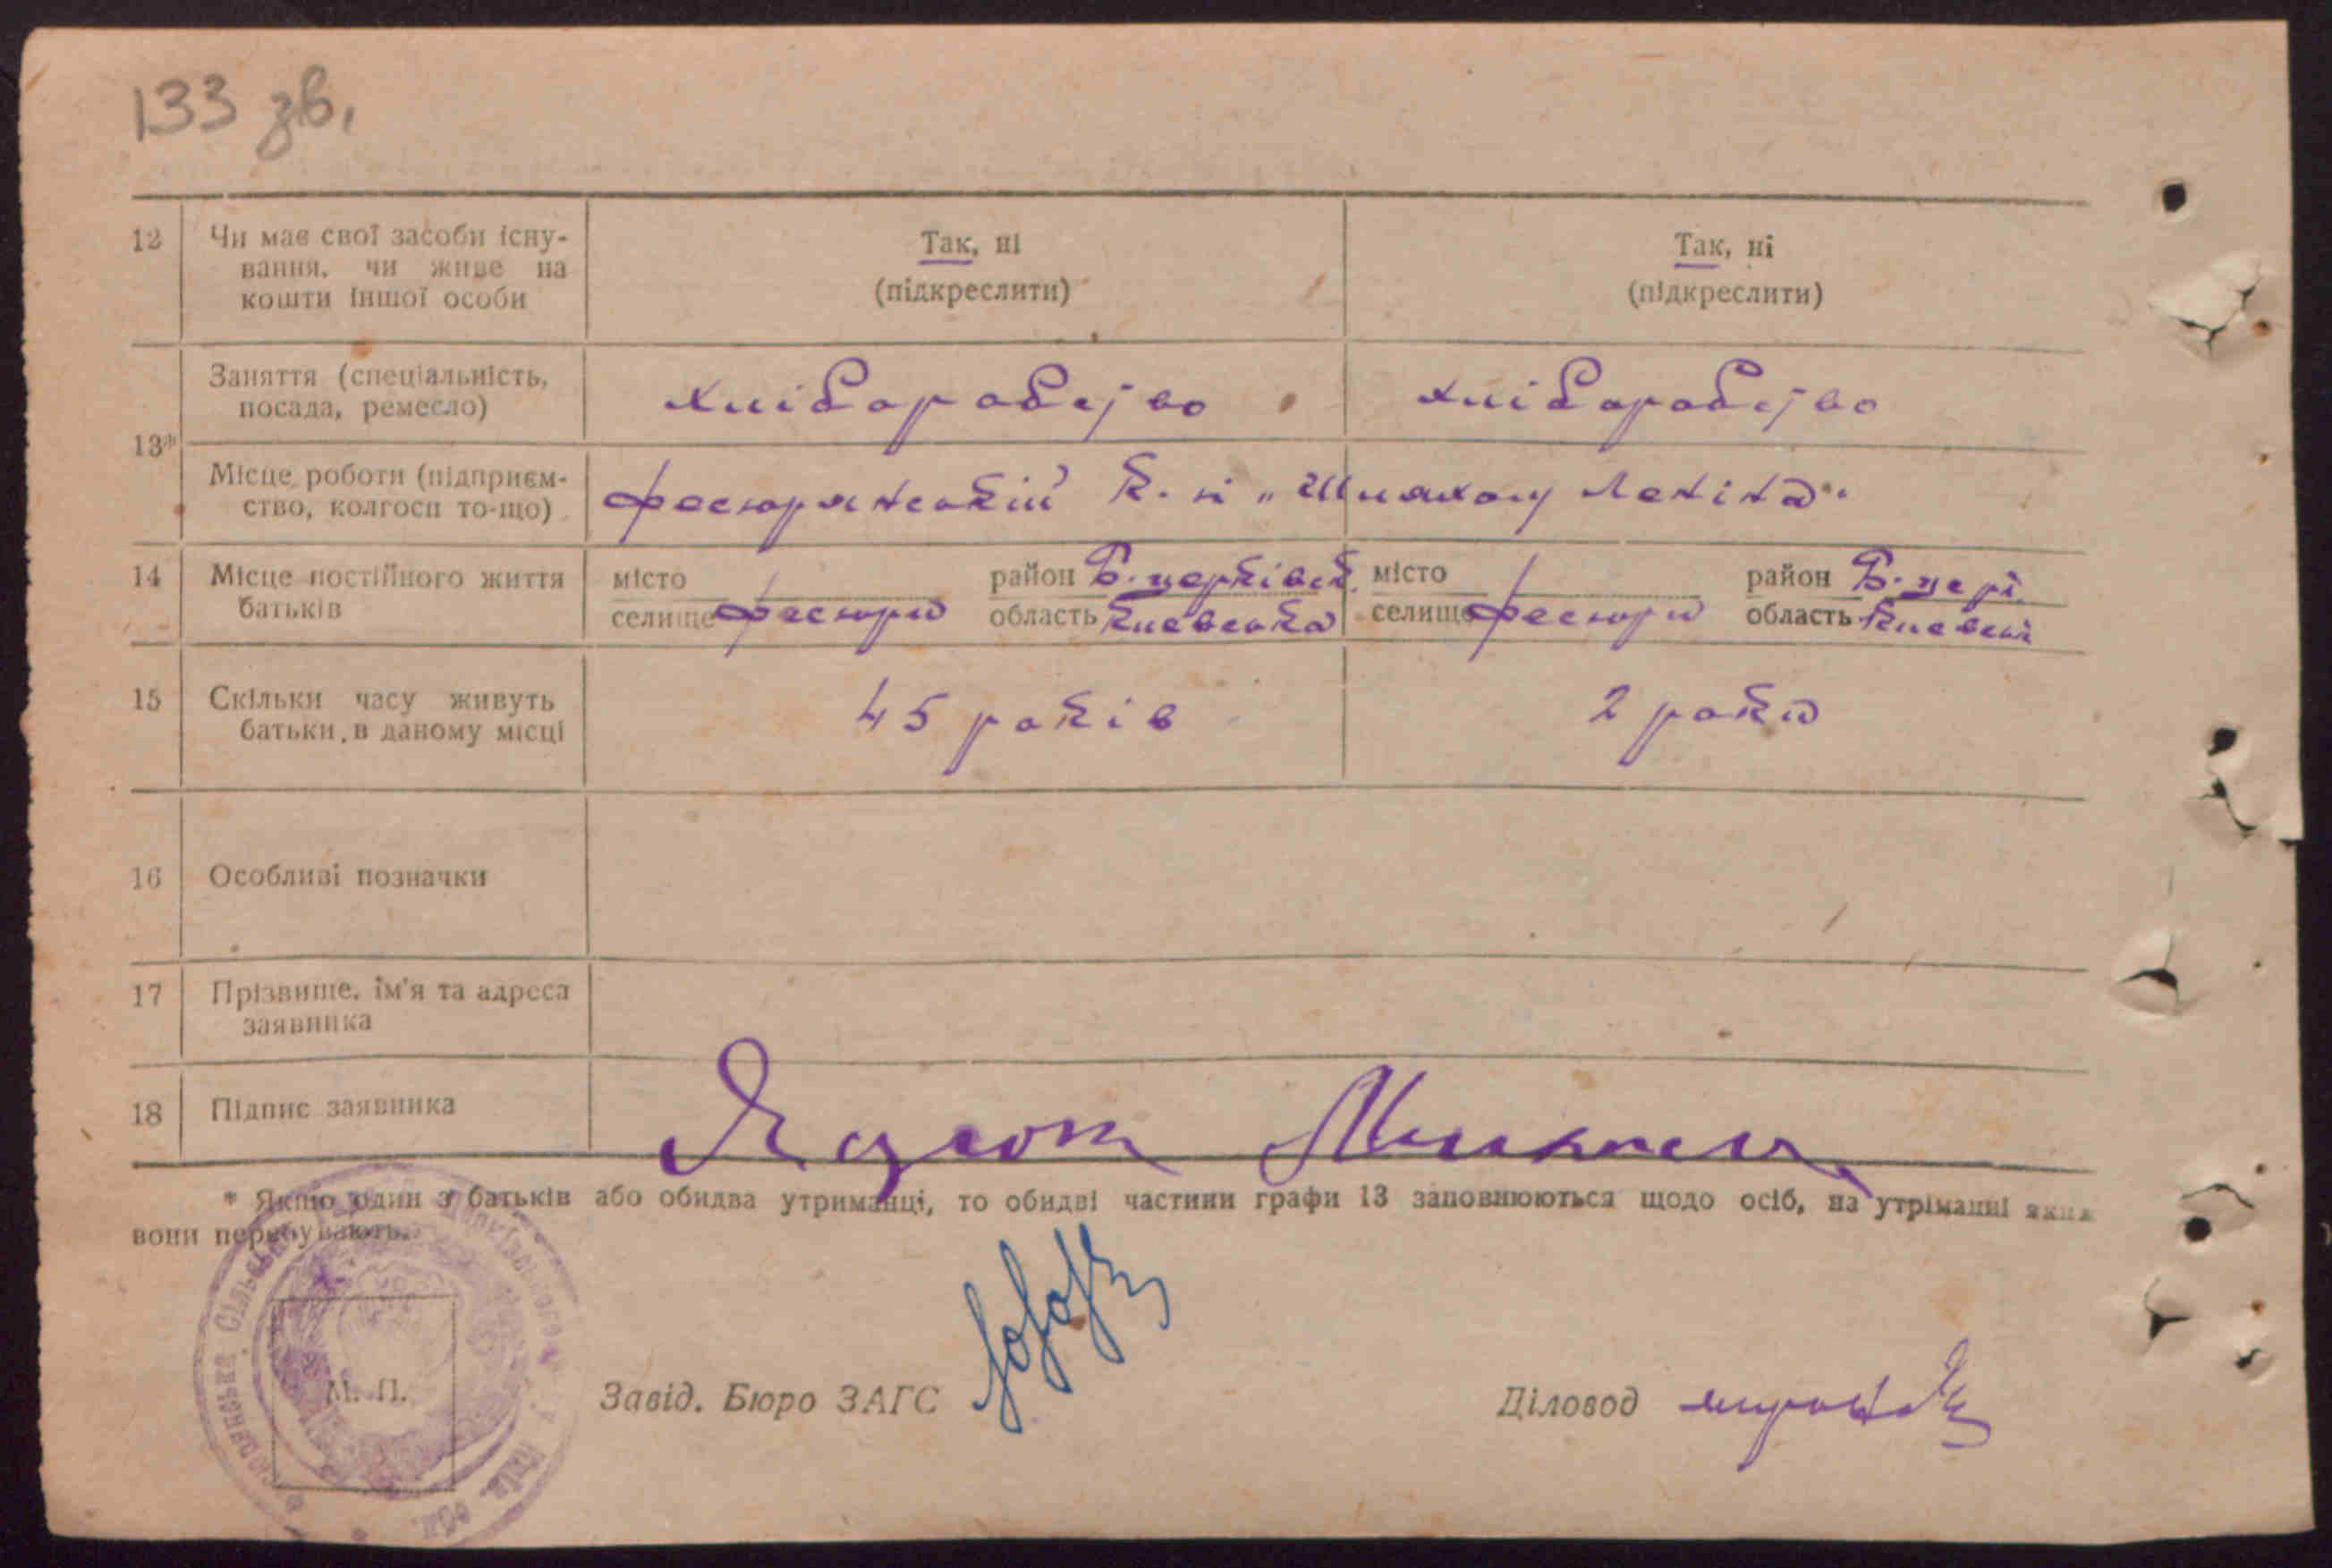 133 зв.
12 Чи має свої засоби існу-
вання, чи живе на
кошти іншої особи
Так, ні
(підкреслити)
Так, ні
(підкреслити)
13*
Заняття (спеціальність,
посада, ремесло)
хліборобство
хліборобство
Місце роботи (підприєм-
ство, колгосп то-що)
фесюрянський к. п „Шляхом Леніна"
14 Місце постійного життя
батьків
місто
селище фесюри
район Б. церківськ.
область Київська
місто
селище фесюри
район Б. церк
область Київськ
15 Скільки часу живуть
батьки в даному місці
45 років
2 роки
16 Особливі позначки
17 Прізвище, ім'я та адреса
заявника
18 Підпис заявника
* Якщо один з батьків або обидва утриманці, то обидві частини графи 13 заповнюються щодо осіб, на утріманні яких
вони перебувають.
М. П.
Завід. Бюро ЗАГС
Діловод